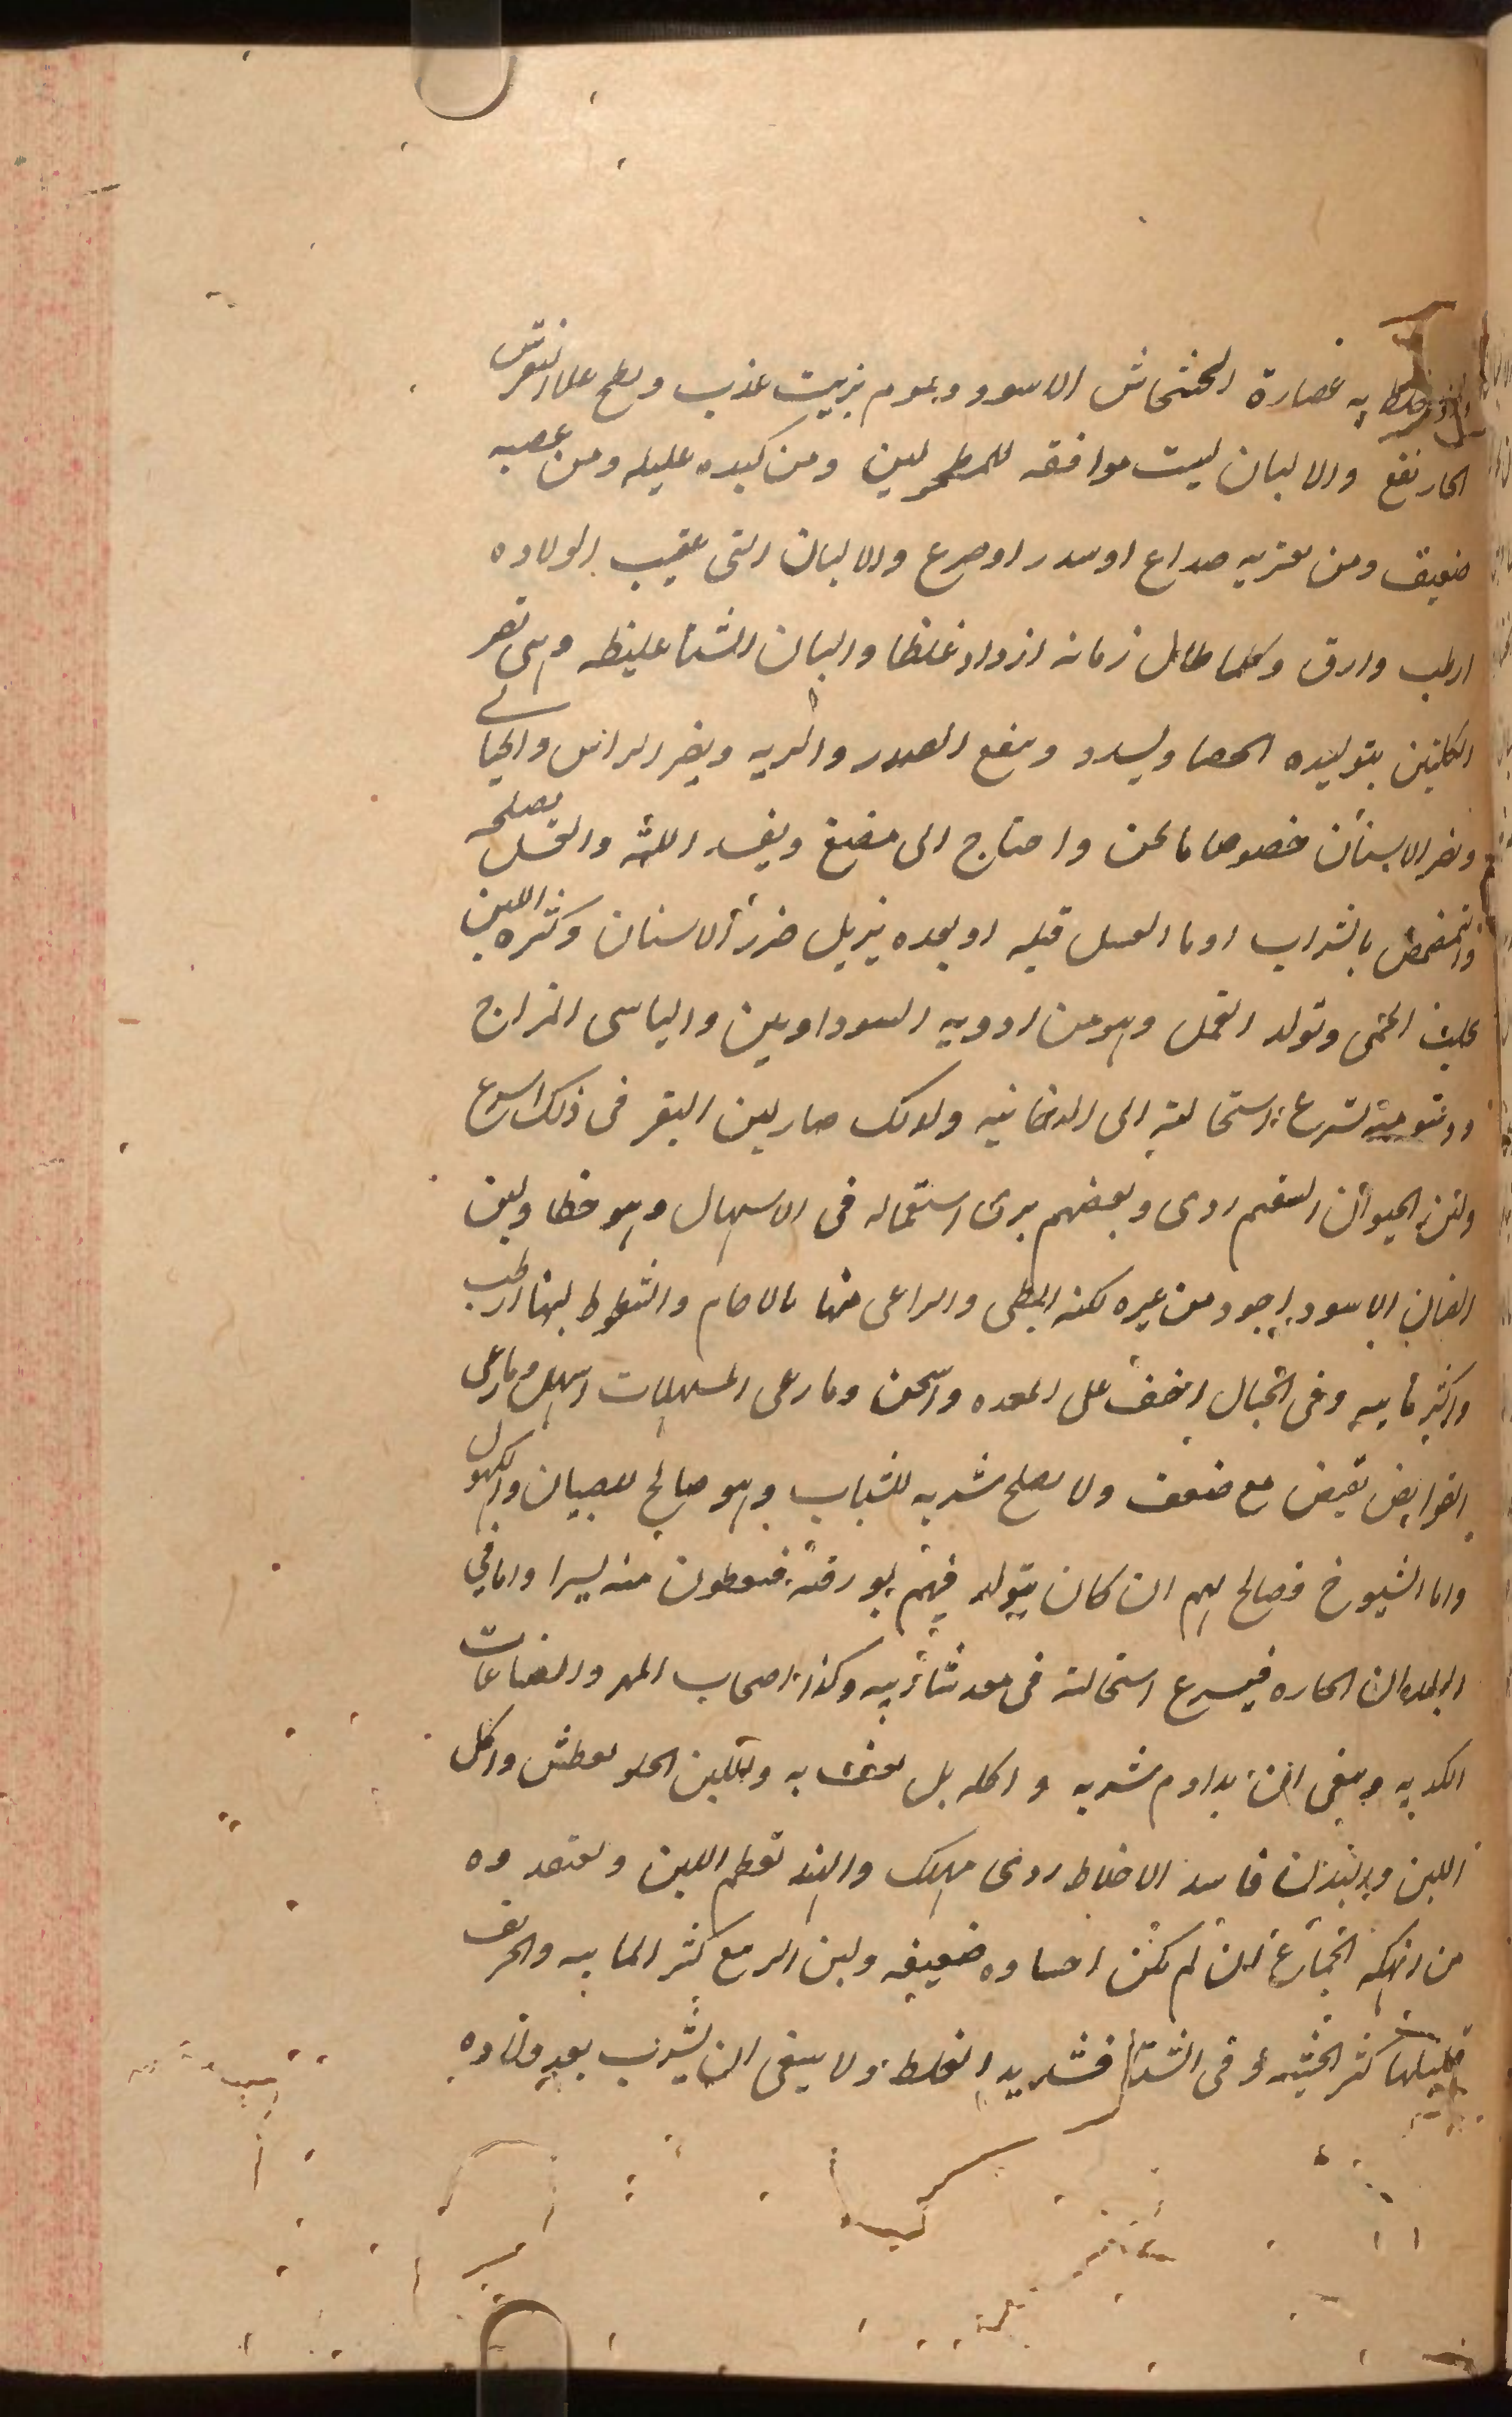 خلط به عصارة الخشخاش الاسود وبموم بزيت عذب ولطخ على النقرس
الحار نفع والالبان ليست موافقه للمطحولين ومن كبده عليله ومن عصبه
ضعيف ومن يعتريه صداع او سدر او صرع والالبان التى عقيب الولاده
ارطب وارق وكلما طال زمانه ازداد غلظا والبان الشتا غليظه وهى تضر
الكليتين بتوليده الحصا ويسدد وينفع الصدر والريه ويضر الراس والحيالى
ويضر الاسنان خصوصا ما ثخن واحتاج الى مضغ ويفسد اللثه والعسل يصلحه
والتمضمض بالشراب او ما العسل قبله او بعده يزيل ضرر الاسنان وكثره اللبن
الحمى وتولد القمل وهو من ادويه السوداويين واليابسى المزاج
ودسومته تسرع استحالته الى الدخانيه ولذلك صار لبن البقر فى ذلك اسرع
ولبن الحيوان السقيم ردى وبعضهم يرى استعماله فى الاسهال وهو خطا ولبن
الضان الاسود اجود من غيره لكنه ابطى والراعى منها بالاجام والشطوط لبنها ارطب
واكثر مايه وفى الجبال اخف على المعده واسخن وما رعى المسهلات اسهل وما رعى
القوابض تقبض مع ضعف ولا يصلح شربه للشباب وهو صالح للصبيان والكهول
واما الشيوخ فصالح لهم ان كان يتولد فيهم بورقته فيعطون منه يسيرا واما فى
البلدان الحاره فيسرع استحالته فى معد شاربيه وكذا اصحاب المهر والصناعات
الكديه وينبغى ان يداوم شربه و اكله بل به واللبن الحلو يعطش واكل
اللبن والبدن فاسد الاخلاط ردى مهلك والهند تعظم اللبن وتعتمدوه
من انهكه الجماع ان لم تكن احشاوه ضعيفه ولبن الربيع كثر المايه والخريف
قليلها كثر الجبنيه وفى الشتا فشديد الغلظ ولا ينبغى ان يشرب بعد ولاده